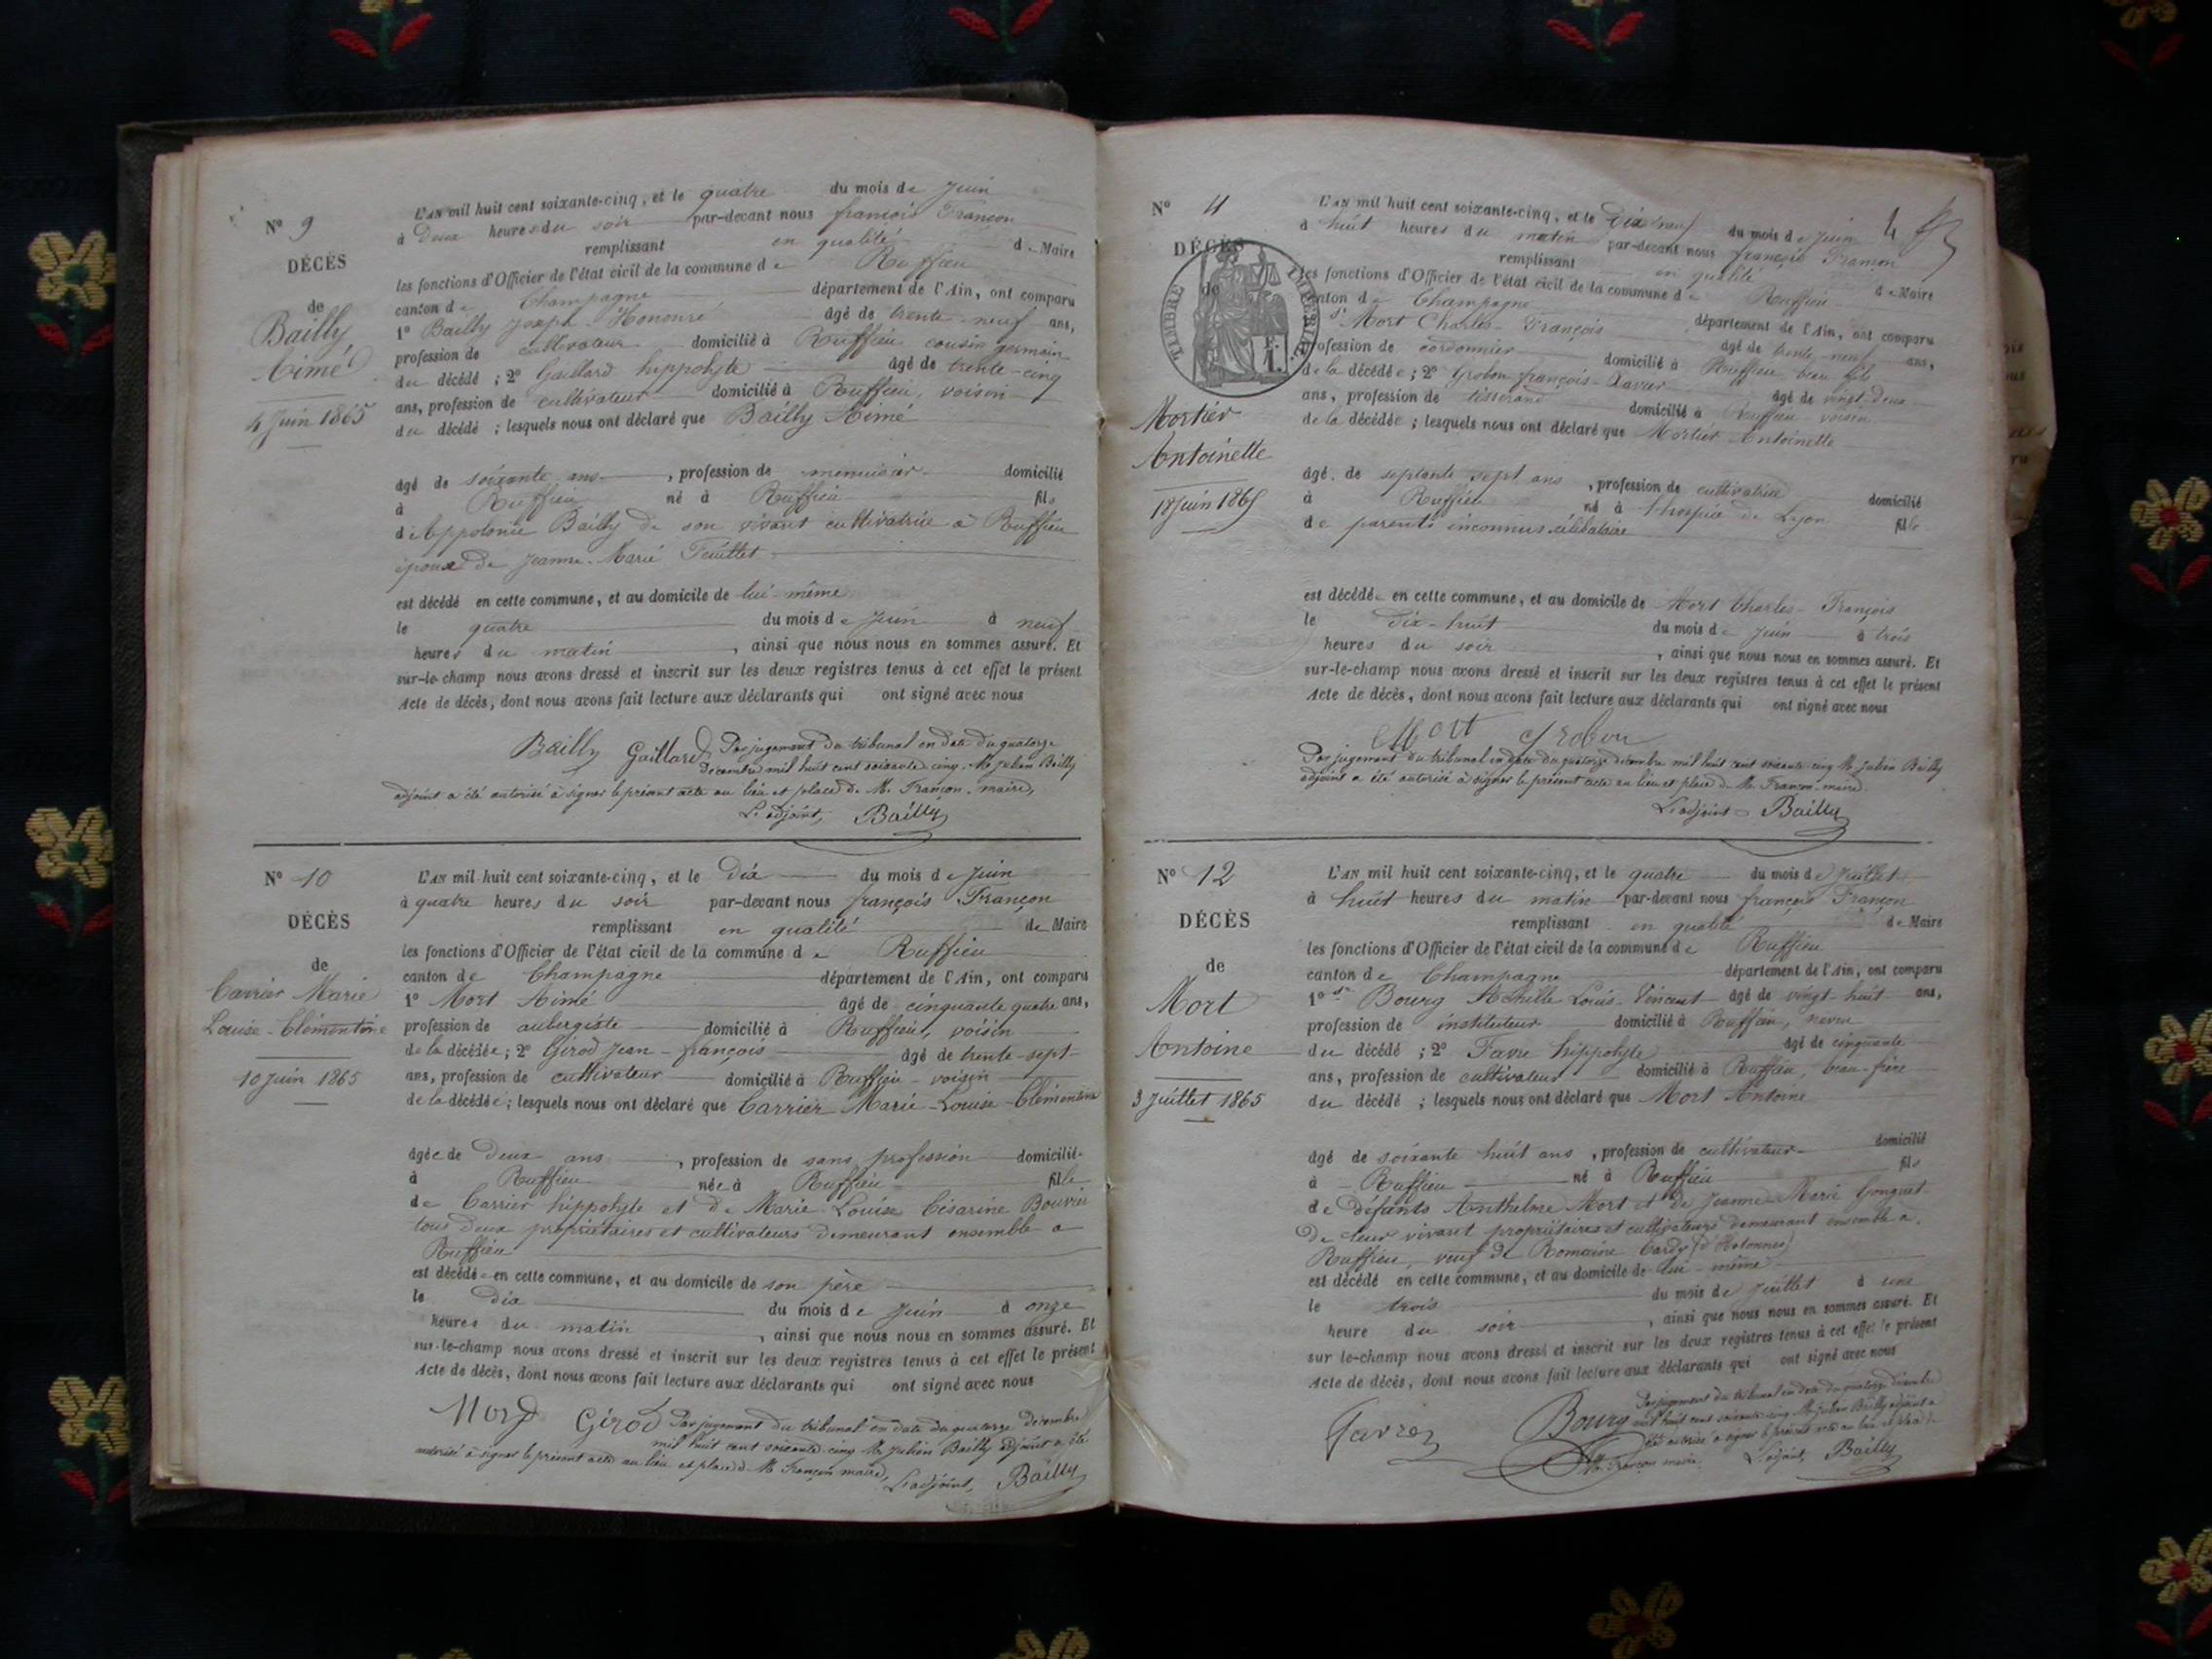 N° 9
DÉCÈS
de
Bailly
Aimé
4 Juin 1865
L'AN mil huit cent soixante-cinq, et le quatre du mois de Juin
à Deux heures du soir par-devant nous françois Françon
remplissant en qualité de Maire
les fonctions d'Officier de l'état civil de la commune de Ruffieu
canton de Champagne département de l'Ain, ont comparu
1° Bailly Joseph-Honouré âgé de trente-neuf ans,
profession de cultivateur domicilié à Ruffieu cousin germain
du décédé ; 2° Gaillard hippolyte âgé de trente-cinq
ans, profession de cultivateur domicilié à Ruffieu, voisin
du décédé ; lesquels nous ont déclaré que Bailly Aimé
âgé de soixante ans, profession de menuisier domicilié
à Ruffieu né à Ruffieu fils
d'Appolonie Bailly de son vivant cultivatrice à Ruffieu
époux de Jeanne-Marie Feuillet
est décédé en cette commune, et au domicile de lui-même
le quatre du mois de Juin à neuf
heures du matin, ainsi que nous nous en sommes assuré. Et
sur-le-champ nous avons dressé et inscrit sur les deux registres tenus à cet effet le présent
Acte de décès, dont nous avons fait lecture aux déclarants qui ont signé avec nous
Bailly Gaillard Par jugement du tribunal en date du quatorze
décembre mil huit cent soixante-cinq. Mr Julien Bailly
adjoint a été autorisé à signer le présent acte au lieu et place de M. Françon, maire,
L'adjoint, Bailly
N° 10
DÉCÈS
de
Carrier Marie
Louise-Clémentine
10 Juin 1865
L'AN mil huit cent soixante-cinq, et le Dix du mois de Juin
à quatre heures du soir par-devant nous françois Françon
remplissant en qualité de Maire
les fonctions d'Officier de l'état civil de la commune de Ruffieu
canton de Champagne département de l'Ain, ont comparu
1° Mort Aimé âgé de cinquante quatre ans,
profession de aubergiste domicilié à Ruffieu, voisin
de la décédée ; 2° Girod Jean-françois âgé de trente-sept
ans, profession de cultivateur domicilié à Ruffieu voisin
de la décédée ; lesquels nous ont déclaré que Carrier Marie-Louise-Clémentine
âgée de Deux ans, profession de sans profession domicilié
à Ruffieu née à Ruffieu fille
de Carrier hippolyte et de Marie-Louise Césarine Bouvier
tous deux propriétaires et cultivateurs demeurant ensemble à
Ruffieu
est décédée en cette commune, et au domicile de son père
le dix du mois de Juin à onze
heures du matin, ainsi que nous nous en sommes assuré. Et
sur-le-champ nous avons dressé et inscrit sur les deux registres tenus à cet effet le présent
Acte de décès, dont nous avons fait lecture aux déclarants qui ont signé avec nous
Mort Girod Par jugement du tribunal en date du quatorze décembre
mil huit cent soixante-cinq Mr Julien Bailly adjoint a été
autorisé à signer le présent acte au lieu et place de M. Françon maire,
L'adjoint, Bailly
N° 11
DÉCÈS
de
TIMBRE IMPÉRIAL
Mortier
Antoinette
18 Juin 1865
4
L'AN mil huit cent soixante-cinq, et le Dix neuf du mois de Juin
à huit heures du matin par-devant nous françois Françon
remplissant en qualité de Maire
les fonctions d'Officier de l'état civil de la commune de Ruffieu
canton de Champagne département de l'Ain, ont comparu
Mort Charles-François âgé de trente-neuf ans,
profession de cordonnier domicilié à Ruffieu, beau fils
de la décédée ; 2° Grobon françois-Xavier âgé de vingt-deux
ans, profession de tisserand domicilié à Ruffieu voisin
de la décédée ; lesquels nous ont déclaré que Mortier Antoinette
âgé de septante sept ans, profession de cultivatrice domicilié
à Ruffieu né à l'hospice de Lyon fille
de parents inconnus célibataire
est décédée en cette commune, et au domicile de Mort Charles-François
le Dix-huit du mois de Juin à trois
heures du soir, ainsi que nous nous en sommes assuré. Et
sur-le-champ nous avons dressé et inscrit sur les deux registres tenus à cet effet le présent
Acte de décès, dont nous avons fait lecture aux déclarants qui ont signé avec nous
Mort Grobon
Par jugement du tribunal en date du quatorze décembre mil huit cent soixante-cinq Mr Julien Bailly
adjoint a été autorisé à signer le présent acte au lieu et place de M. Françon maire.
L'adjoint Bailly
N° 12
DÉCÈS
de
Mort
Antoine
3 Juillet 1865
L'AN mil huit cent soixante-cinq, et le quatre du mois de Juillet
à huit heures du matin par-devant nous françois Françon
remplissant en qualité de Maire
les fonctions d'Officier de l'état civil de la commune de Ruffieu
canton de Champagne département de l'Ain, ont comparu
1° Bourg Achille Louis-Vincent âgé de vingt-huit ans,
profession de instituteur domicilié à Ruffieu, neveu
du décédé ; 2° Favre hippolyte âgé de cinquante
ans, profession de cultivateur domicilié à Ruffieu, beau-frère
du décédé ; lesquels nous ont déclaré que Mort Antoine
âgé de soixante huit ans, profession de cultivateur domicilié
à Ruffieu né à Ruffieu fils
de défunts Anthelme Mort et de Jeanne-Marie Gonguet
De leur vivant propriétaires et cultivateurs demeurant ensemble à
Ruffieu, veuf de Romaine Cardy (d'Hotonnes)
est décédé en cette commune, et au domicile de lui-même
le trois du mois de Juillet à une
heure du soir, ainsi que nous nous en sommes assuré. Et
sur le-champ nous avons dressé et inscrit sur les deux registres tenus à cet effet le présent
Acte de décès, dont nous avons fait lecture aux déclarants qui ont signé avec nous
Favre Bourg Par jugement du tribunal en date du quatorze décembre
mil huit cent soixante-cinq Mr Julien Bailly adjoint a
été autorisé à signer le présent acte au lieu et place de
M. Françon maire. L'adjoint, Bailly